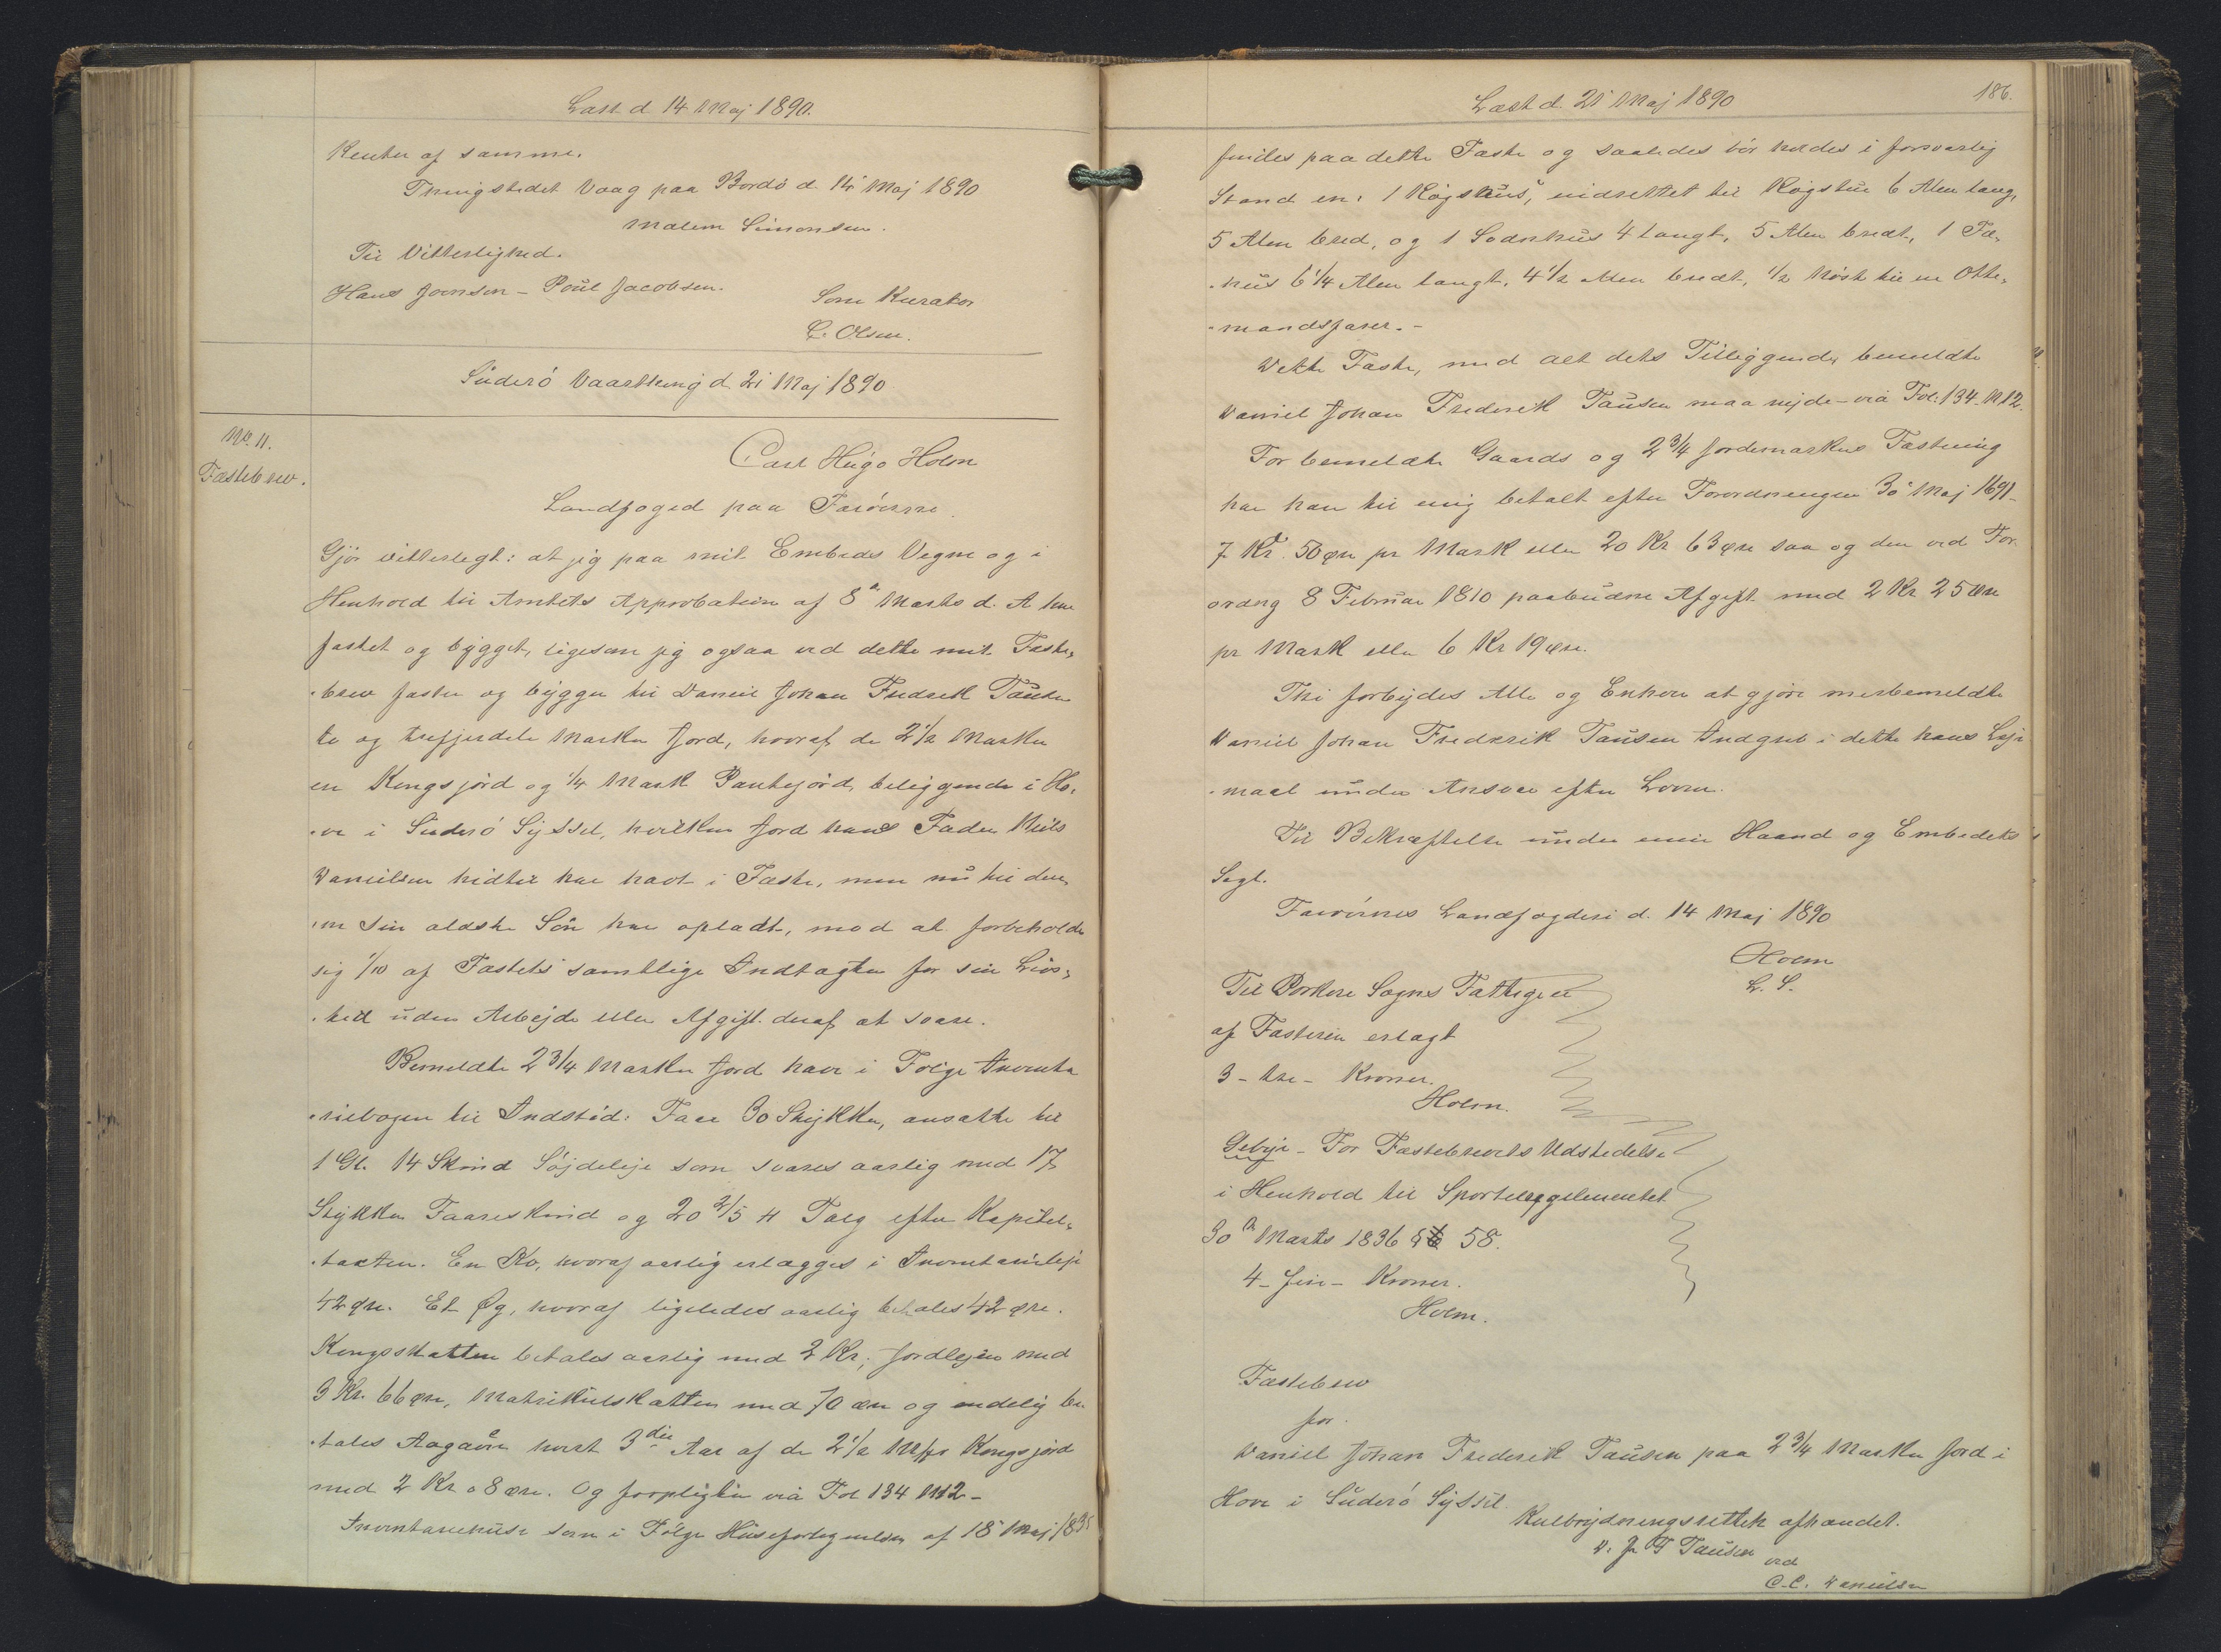 Læst d. 14 Maj 1890.
Renter af samme.
Thingstedet Vaag paa Bordö d. 14' Maj 1890
Malem Simonsen.
Til Vitterlighed.
Hans Joensen - Poul Jacobsen.
Som Kurator
C. Olsen.
Süderö Vaarthing d. 21 Maj 1890
No. 11.
Fæstebrev.
Carl Hugo Holm
Landfoged paa Færöerne.
Gjör vitterlegt: at jeg paa mit Embeds Vegne og i
Henhold til Amtets Approbation af 8de Marts d. A. har
fæstet og bygget, ligesom jeg ogsaa ved dette mit Fæste,
.brev fæster og bygger til Daniel Johan Fredrik Tausen
to og trefjerdele Marker Jord, hvoraf de 2 1/2 Marker
er Kongsjord og 1/4 Mark Pantejord, beliggende i Ho,
.ve i Süderö Syssel, hvilken Jord hans Fader Niels
Danielsen hidtil har havt i Fæste, men nu til den,
.ne sin ældste Sön har opladt, mod at forbeholde
sig 1/10 af Fæstets samtlige Indtægter for sin Livs,
.tid uden Arbejde eller Afgift deraf at svare.
Bemeldte 2 3/4 Marker Jord have i Fölge Inventa
.riebogen til Indstöd: Faar 30 Stykker, ansatte til
1 Gl. 14 Skind Söjdeleje som svares aarlig med 17
Stykker Faareskind og 20 2/5 ℔ Talg efter Kapitel,
.taxten. En Ko, hvoraf aarlig erlægges i Inventarieleje
42 øre. Et Øg, hvoraf ligeledes aarlig betales 42 øre.
Kongsskatten betales aarlig med 2 Kr., Jordlejen med
3 Kr. 66 øre, Matrikulskatten med 70 øre og endelig be.
.tales Aagave hvert 3die Aar af de 2 1/2 Mkr Kongsjord
med 2 Kr. 08 øre. Og forpligter via Fol 134 N 12 -
Inventariehuse som i Fölge Husefortegnelsen af 18' Maj 1835
Læst d. 21' Maj 1890
186.
findes paa dette Fæste og saaledes bör holdes i forsvarlig
Stand er: 1 Røgshus, indrettet til Røgstue 6 Alen lang,
5 Alen bred, og 1 Sodnhus 4 langt, 5 Alen bredt, 1 Fæ,
.hus 6 1/4 Alen langt, 4 1/2 Alen bredt, 1/2 Nöst til en Otte,
.mandsfarer. -
Dette Fæste, med alt dets Tilliggende, bemeldte
Daniel Johan Frederik Tausen maa nyde - via Fol: 134 N 12.
For bemeldte Gaards og 2 3/4 Jordemarkers Fæstning
har han til mig betalt efter Forordningen 30' Maj 1691
7 Kr. 50 øre pr Mark eller 20 Kr 63 øre saa og den ved For.
ordng 8 Februar 1810 paabudne Afgift med 2 Kr 25 øre
pr Mark eller 6 Kr 19 øre.
Thi forbydes Alle og Enhver at gjöre merbemeldte
Daniel Johan Frederik Tausen Indgreb i dette hans Leje
.maal under Ansvar efter Loven.
Til Bekræftelse under min Haand og Embedets
Segl.
Færöernes Landfogderi d. 14 Maj 1890
Holm
L. S.
Til Porkere Sogns Fattige er
af Fæsteren erlagt
3 - tre - Kroner.
Holm.
Gebyr - For Fæstebrevets Udstedelse
i Henhold til Sportelreglementet
30te Marts 1836 § 58.
4 - fire - Kroner.
Holm.
Fæstebrev
for
Daniel Johan Frederik Tausen paa 2 3/4 Marker Jord i
Hove i Süderö Syssel.
Kulbrydningsretten afhændet.
D. J. F. Tausen
ved
C. C. Danielsen